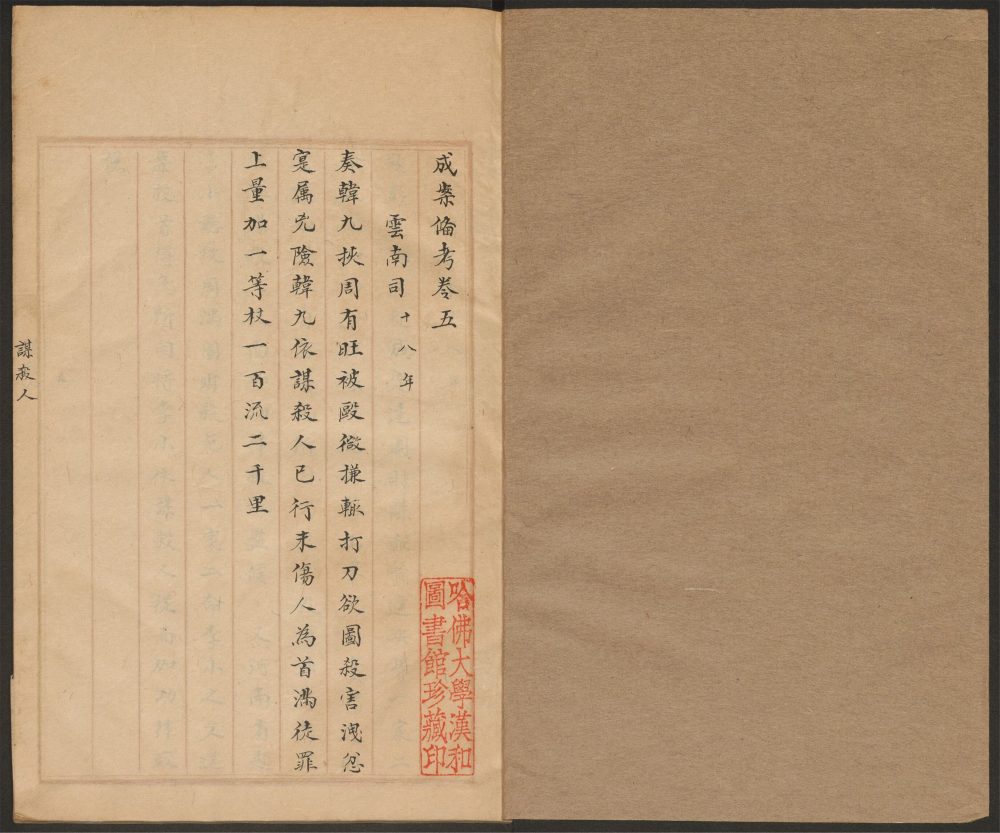 成案俻考卷五
雲南司十八年
奏韓九挾周有旺被毆微㨿輙打刀欲圖殺害洩忿
寔属兇險韓九依謀殺人已行未傷人為首滿徒罪
上量加一等杖一百流二千里
謀殺人
哈佛大學漢和
圖書館珍藏印